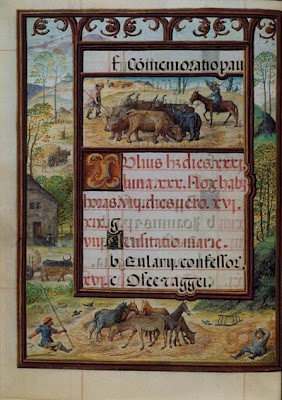 f Cōmemoratio pau
Iulius hƺ dies xxxi
luna xxx. Nox habƺ
horas viij. dies uero xvi
xix g
viij A Uisitatio marie.
b Eulaxij confessor.
xvi c Osee ⁊ aggei.